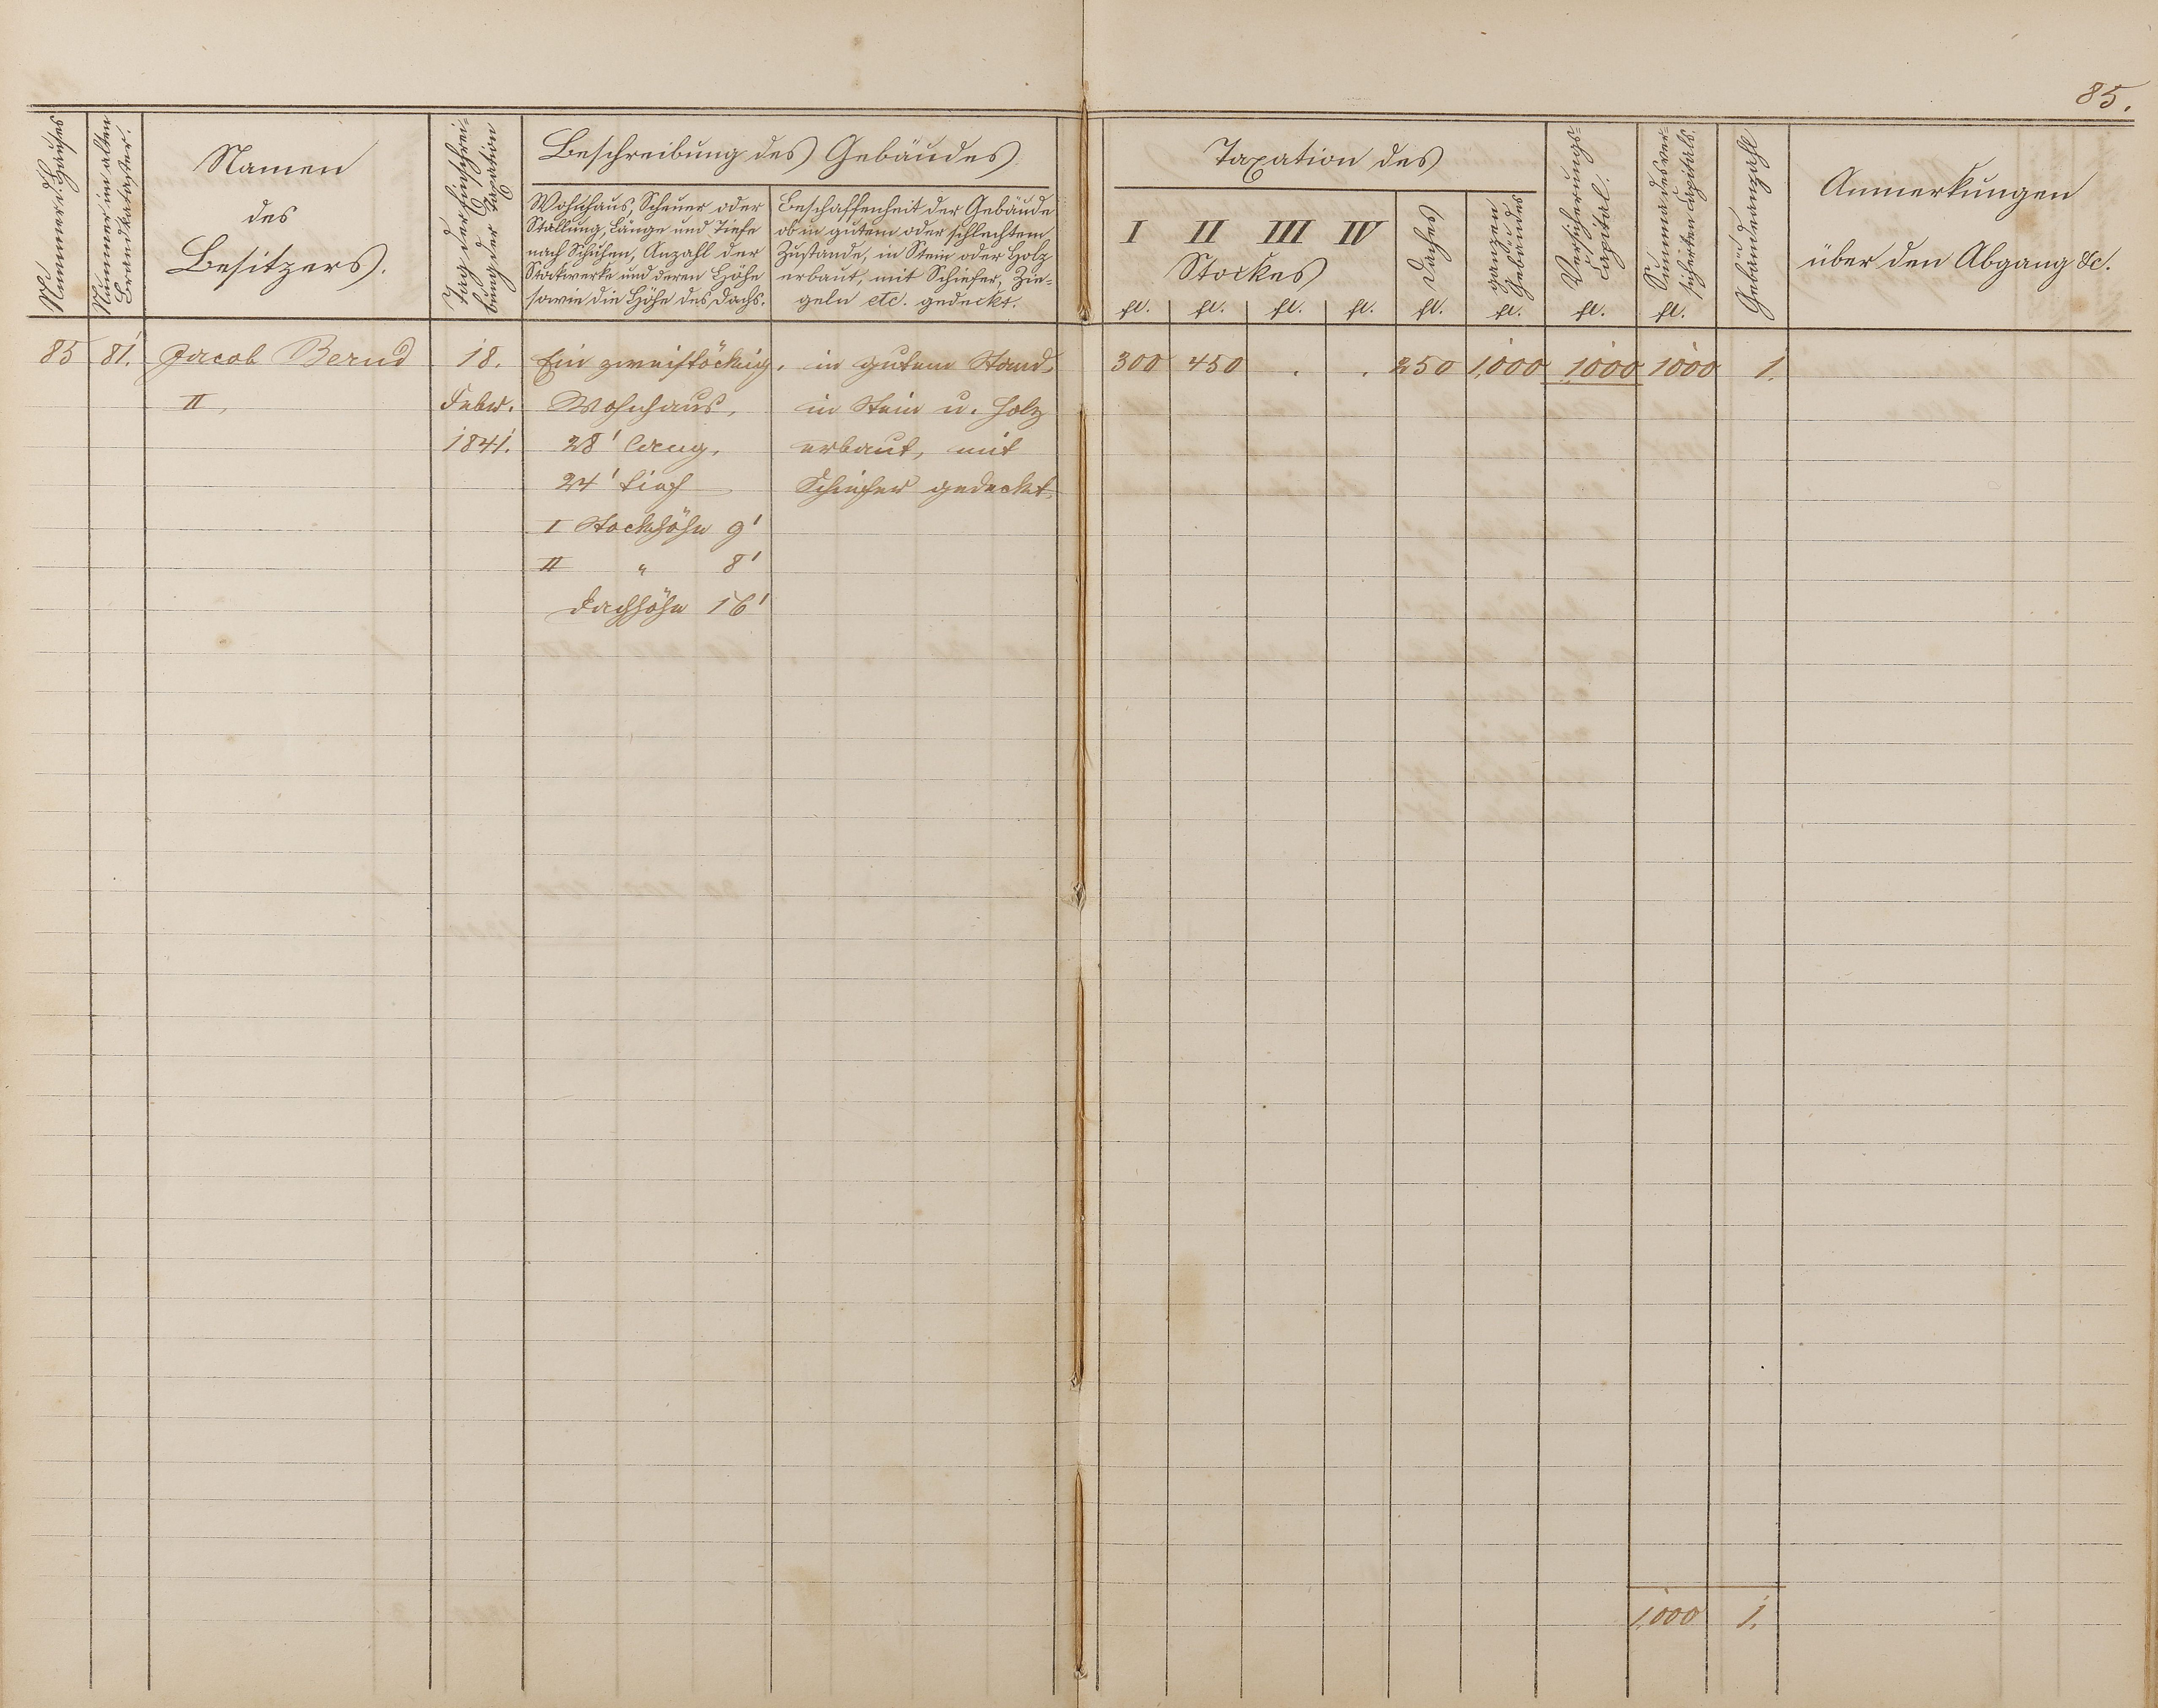 85.
Nummer d. Hauses
Nummer im alten
Brandkataster.
Namen
des
Besitzers.
Tag der Einschrei-
bung der Taxation
Beschreibung des Gebäudes
Wohnhaus, Scheuer oder
Stallung, Länge und Tiefe
nach Schuhen, Anzahl der
Stockwerke und deren Höhe
sowie die Höhe des Dachs.
Beschaffenheit der Gebäude
ob in gutem oder schlechtem
Zustande, in Stein oder Holz
erbaut, mit Schiefer, Zie-
geln etc. gedeckt.
Taxation des
I II III IV
Stockes
Daches
ganzen
Gebäudes
Versicherungs-
Capital.
Summa des ver-
sicherten Capitals.
Gebäudeanzahl
Anmerkungen
über den Abgang &c.
fl. fl. fl. fl. fl. fl. fl. fl.
85 81. Jacob Bernd 18. Ein zweistöckig. in gutem Stand, 300 450 . . 250 1,000 1,000 1000 1.
II, Febr. Wohnhaus, in Stein u. Holz
1841. 28' lang, erbaut, mit
24' tief Schiefer gedeckt.
I Stockhöhe 9'
II " 8'
Dachhöhe 16'
1,000 1.